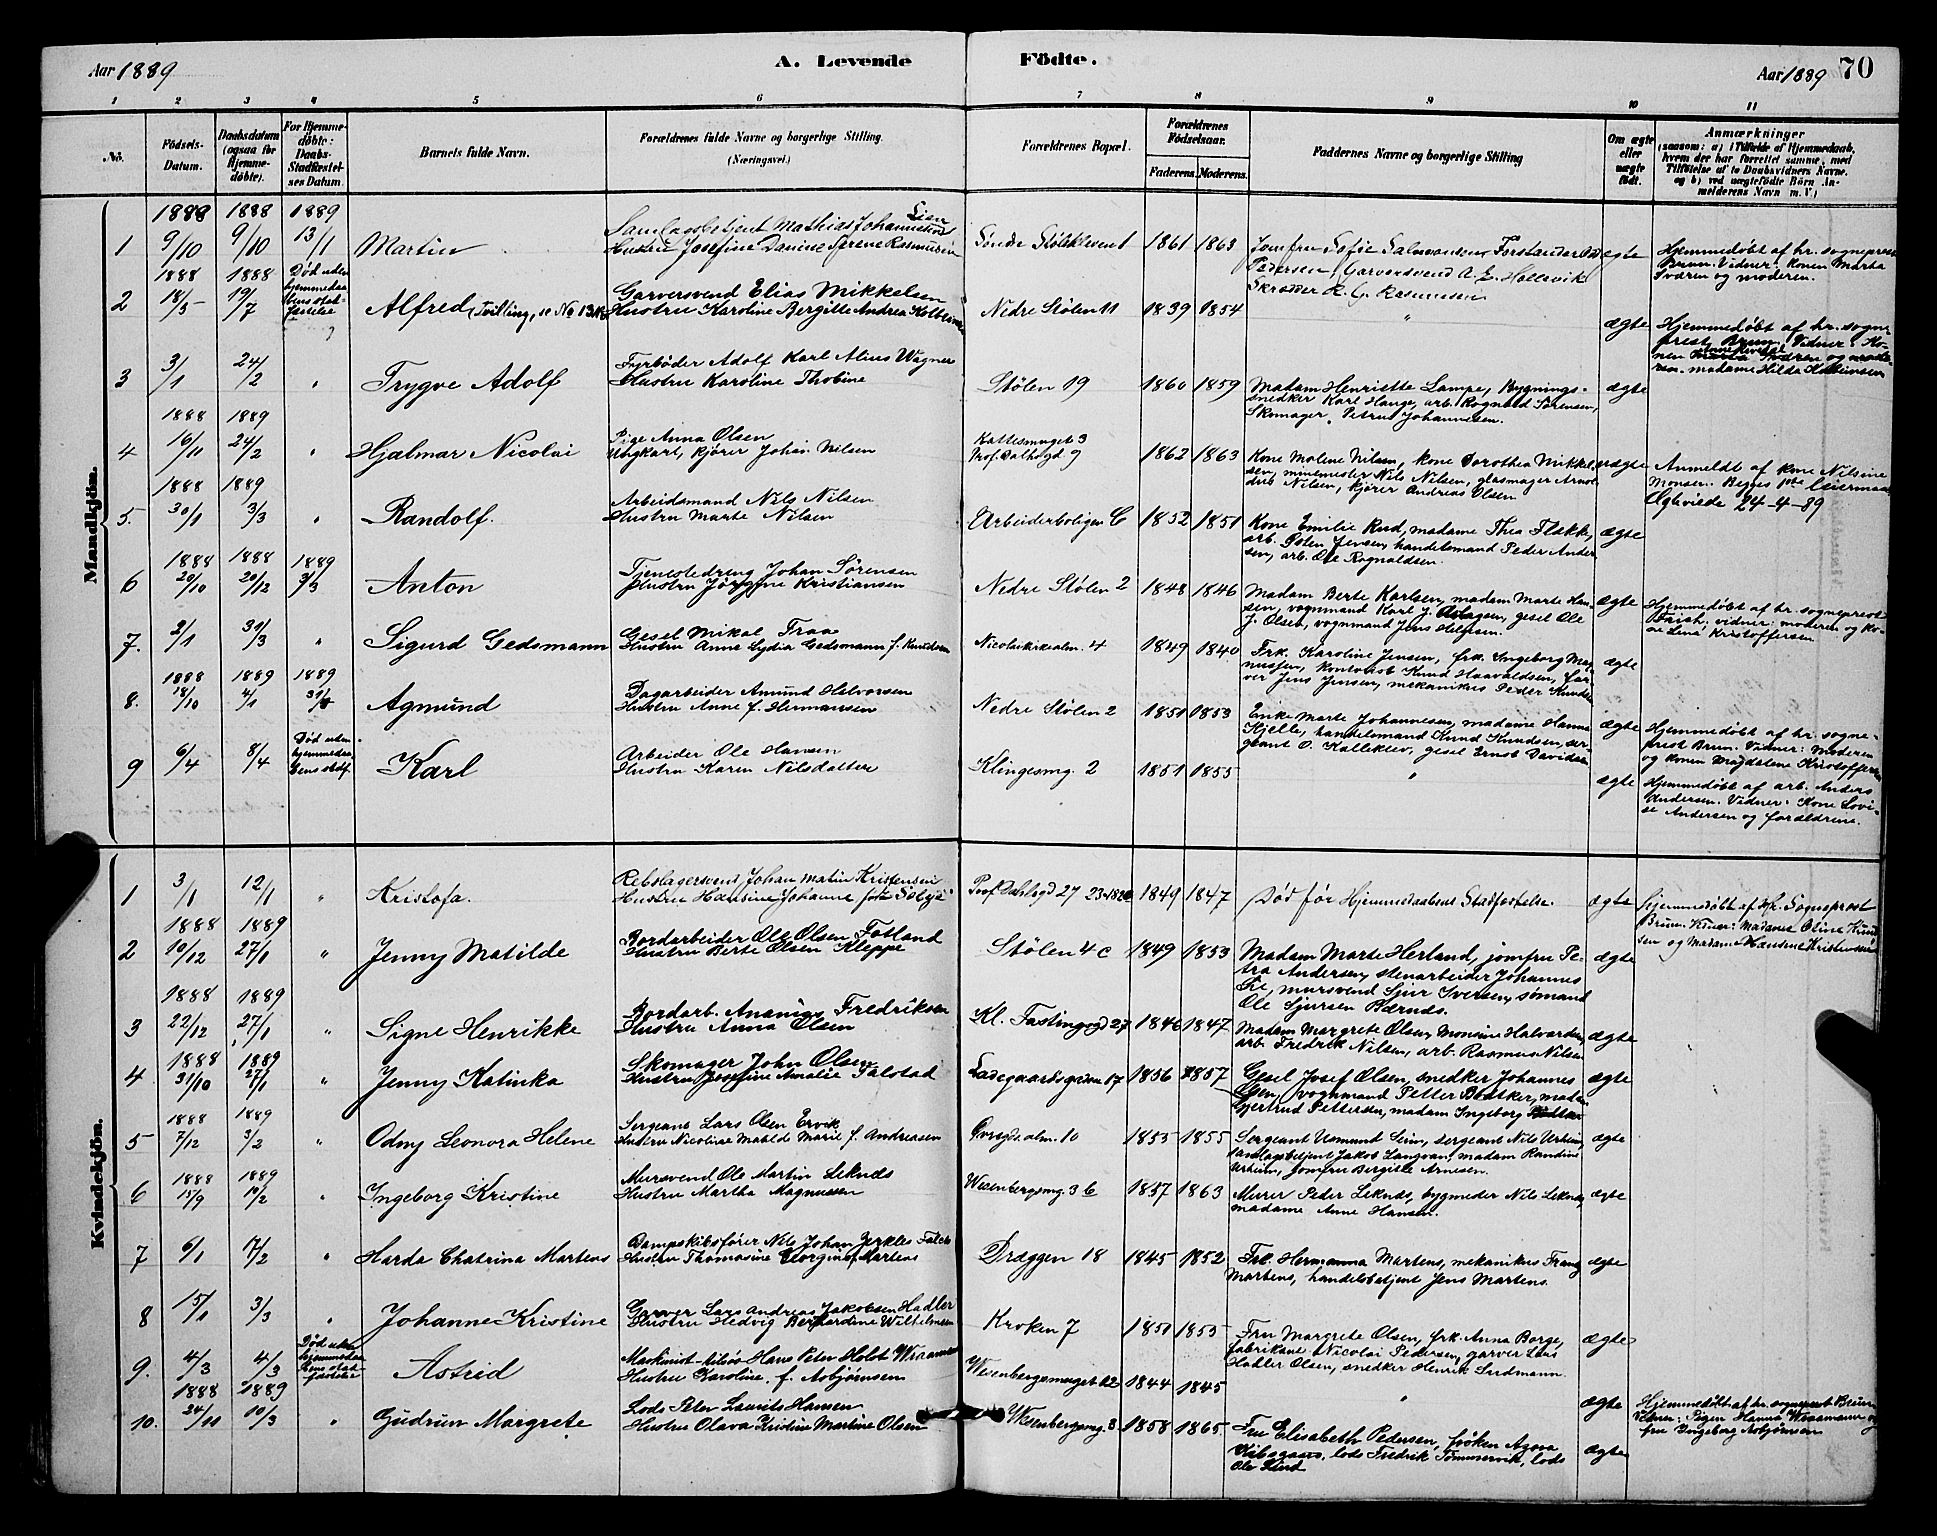 Aar 1889
A. Levende Födte.
Aar 1889 70
1 2 3 4 5 6 7 8 9 10 11
No.
Födsels-Datum.
Daabsdatum (ogsaa for Hjemme-døbte).
For Hjemme-döbte: Daabs-Stadfæstel-ses Datum.
Barnets fulde Navn.
Forældrenes fulde Navne og borgerlige Stilling. (Næringsvei.)
Forældrenes Bopæl.
Forældrenes Födselsaar.
Faderens. Moderens.
Faddernes Navne og borgerlige Stilling
Om ægte eller uægte födt.
Anmærkninger
(saasom: a) i Tilfælde af Hjemmedaab, hvem der har forrettet samme, med Tilföielse af to Daabsvidners Navne, og b) ved uægtefödte Börn An-melderens Navn m. V.)
Mandkjön.
1 1888 9/10 1888 9/10 1889 13/1 Martin
Samlagsbetjent Mathias Johannes Lien
Hustru Josefine Danine Serene Rasmussen
Søndre Stølekleven 1 1861 1863
Jomfru Sofie Salomonsen Forstander
Pedersen, Garversvend A. E. Hollevik
Skrædder R. G. Rasmussen
ægte
Hjemmedøbt af hr. sogneprest
Brun. Vidner: konen Marta
Sværen og moderen.
2 1888 18/5 1888 19/7 Død uden hjemmedaa-bens stad-fæstelse
Alfred (Tvilling, se No 13
Garversvend Elias Mikkelsen
Hustru Karoline Bergitte Andrea
Nedre Stølen 11 1839 1854 " ægte
Hjemmedøbt af hr. sogne-
prest Brun. Vidner: Ko-
nen Sværen og mode-
ren. madame Hilda
3 3/1 24/2 " Trygve Adolf
Fyrbøder Adolf Karl Alius Wagner
Hustru Karoline Thobine
Stølen 19 1860 1859
Madam Henriette Lampe, Bygnings-
snedker Karl Hauge, arb. Rognald Sørensen,
Skomager Petrus Johannesen.
ægte
4 1888 16/11 1889 24/2 " Hjalmar Nicolai
Pige Anna Olsen
Ungkarl, kjører Johan Nilsen
Kattesmuget 3
Prof. Dahlsgd 9
1862 1863
Kone Malene Nilsen, kone Dorothea Mikkel-
sen, minemester Nils Nilsen, glasmager Arnol-
dus Nilsen, kjører Andreas Olsen
uægte
Anmeldt af kone Nilsine
Monsen. Begges 1ste leiermaal
Ægteviede 24-4-89
5. 1888 30/1 1889 3/3 " Randolf.
Arbeidsmand Nils Nilsen
Hustru Marte Nilsen
Arbeiderboligen C 1852 1851
Kone Emilie Rud, madame Thea Flække,
arb. Peten Jensen, handelsmand Peder Ander
sen, arb. Ole Rognaldsen.
ægte
6 1888 20/10 1888 20/12 1889 3/3 Anton
Tjenestedreng Johan Sørensen
Hustru Jørgine Kristiansen
Nedre Stølen 2 1848 1846
Madam Berte Karlsen, madam Marte Han-
sen, vognmand Karl J. Aslagsen, gesel Ole
J. Olsen, vognmand Jens Helgesen.
ægte
Hjemmedøbt af hr. sogneprest
Faish, vidner: moderen og ko-
ne Lina Kristoffersen
7. 2/1 31/3 " Sigurd Gedsmann
Gesel Mikal Traa
Hustru Anne Lydia Gedsmann f. Knudsen
Nicolaikirkealm. 4 1849 1840
Frk. Karoline Jensen, frk. Ingeborg Mag-
nussen, kontorist Knud Haavaldsen, far-
ver Jens Jensen, mekanikus Peder Knudsen
ægte
8. 1888 18/10 1889 4/1 1889 31/3 Agmund
Dagarbeider Amund Helvorsen
Hustru Anne f. Hermansen
Nedre Stølen 2 1851 1853
Enke Marte Johannesen, madame Hanna
Kjelle, handelsmand Knud Knudsen, ser-
geant O. Kalleklev, gesel Ernst Davidsen
ægte
Hjemmedøbt af hr. sogne-
prest Brun. Vidner: Moderen
og konen Magdalene Kristoffersen
9 6/4 8/4 Død uden hjemmedaa-bens stadf. Karl
Arbeider Ole Hansen
Hustru Karen Nilsdatter
Klingesmg. 2 1851 1855 " ægte
Hjemmedøbt af arb. Anders
Andersen. Vidner: Kone Lovi-
se Andersen og forældrene.
Kvindekjön.
1 3/1 12/1 " Kristofa.
Rebslagersvend Johan Matin Kristensen
Hustru Hansine Johanne født Solbjø
Prof. Dahlsgd 27 1849 1847
Død før Hjemmedaabens Stadfæstelse.
ægte
Hjemmedøbt af Hr. Sogneprest
Brun. Vidner: Madame Oline Knud
sen og Madame Hansine Kristensen
2 1888 10/12 1889 27/1 " Jenny Matilde
Bordarbeider Ole Olsen Fotland
Hustru Berte Olsen Kleppe
Stølen 4c 1849 1853
Madam Marte Herland, jomfru Pe-
tra Andersen, stenarbeider Johannes
Tre, mursvend Sjur Iversen, sømand
Ole Sjursen Bærnæs.
ægte
3 1888 22/12 1889 27/1 " Signe Henrikke
Bordarb. Ananias Fredriksen
Hustru Anna Olsen
Kl. Fastingsgd 27 1846 1847
Madam Margrete Olsen, Monsine Halvorsen,
arb. Fredrik Nilsen, arb. Rasmus Nilsen
ægte
4 1888 31/10 1889 27/1 " Jenny Katinka
Skomager John Olsen
Hustru Josefine Amalie Falstad
Ladegaardsgaden 17 1856 1857
Gesel Josef Olsen, snedker Johannes
Olsen, vognmand Petter Bødtker, madam
Gjertrud Pettersen, madam Ingeborg
ægte
5 1888 7/12 1889 3/2 " Odny Leonora Helene
Sergeant Lars Olsen Ervik
Hustru Nicoline Matilde Marie f. Andreasen
Øvregds. alm. 10 1855 1855
Sergeant Usmund Seim, sergeant Nils Urheim,
samlagsbetjent Jakob Langvan, madam Randine
Urheim, jomfru Bergitte Arnesen.
ægte
6 1888 15/9 1889 10/2 " Ingeborg Kristine
Mursvend Ole Martin Leknes
Hustru Martha Magnussen
Wesenbergsmg. 3 b 1857 1863
Murer Peder Leknæs, bygmeder Nils Leknes,
madame Anne Hansen.
ægte
7 6/1 17/2 " Harda Chatrina Martens
Dampskibsfører Nils Johan Falch
Hustru Thomasine Georgine f. Martens
Dræggen 18 1845 1852
Frk. Hermanna Martens, mekanikus Franz
Martens, handelsbetjent Jens Martens.
ægte
8 15/1 3/3 " Johanne Kristine
Garver Lars Andreas Jakobsen Hadler
Hustru Hedvig Bernardine Wilhelmsen
Kroken 7 1851 1855
Fru Margrete Olsen, frk. Anna Borge,
fabrikant Nicolai Pedersen, garver Lars
Hadler Olsen, snedker Henrik Lindmann.
ægte
9. 4/3 4/3 Død uden hjemmedaa-bens stad-fæstelse Astrid
Maskinist Hans Peter Holst Wisamann
Hustru Karoline f. Asbjørnsen
Wesenbergsmuget 12 1844 1845 " ægte
Hjemmedøbt af hr. sogneprest Brun
Vidner: Pigen Hanna Wisamann og
fru Ingeborg Asbjørnsen
10. 1888 24/11 1889 10/3 " Gudrun Margrete
Lods Peter Laurits Hansen
Hustru Olava Kristine Martine Olsen
Wesenbergsmg. 3 1858 1865
Fru Elisabeth Pedersen, frøken Agna
Kibsgaard, lods Fredrik Tommervik, lods
Ole Lind
ægte